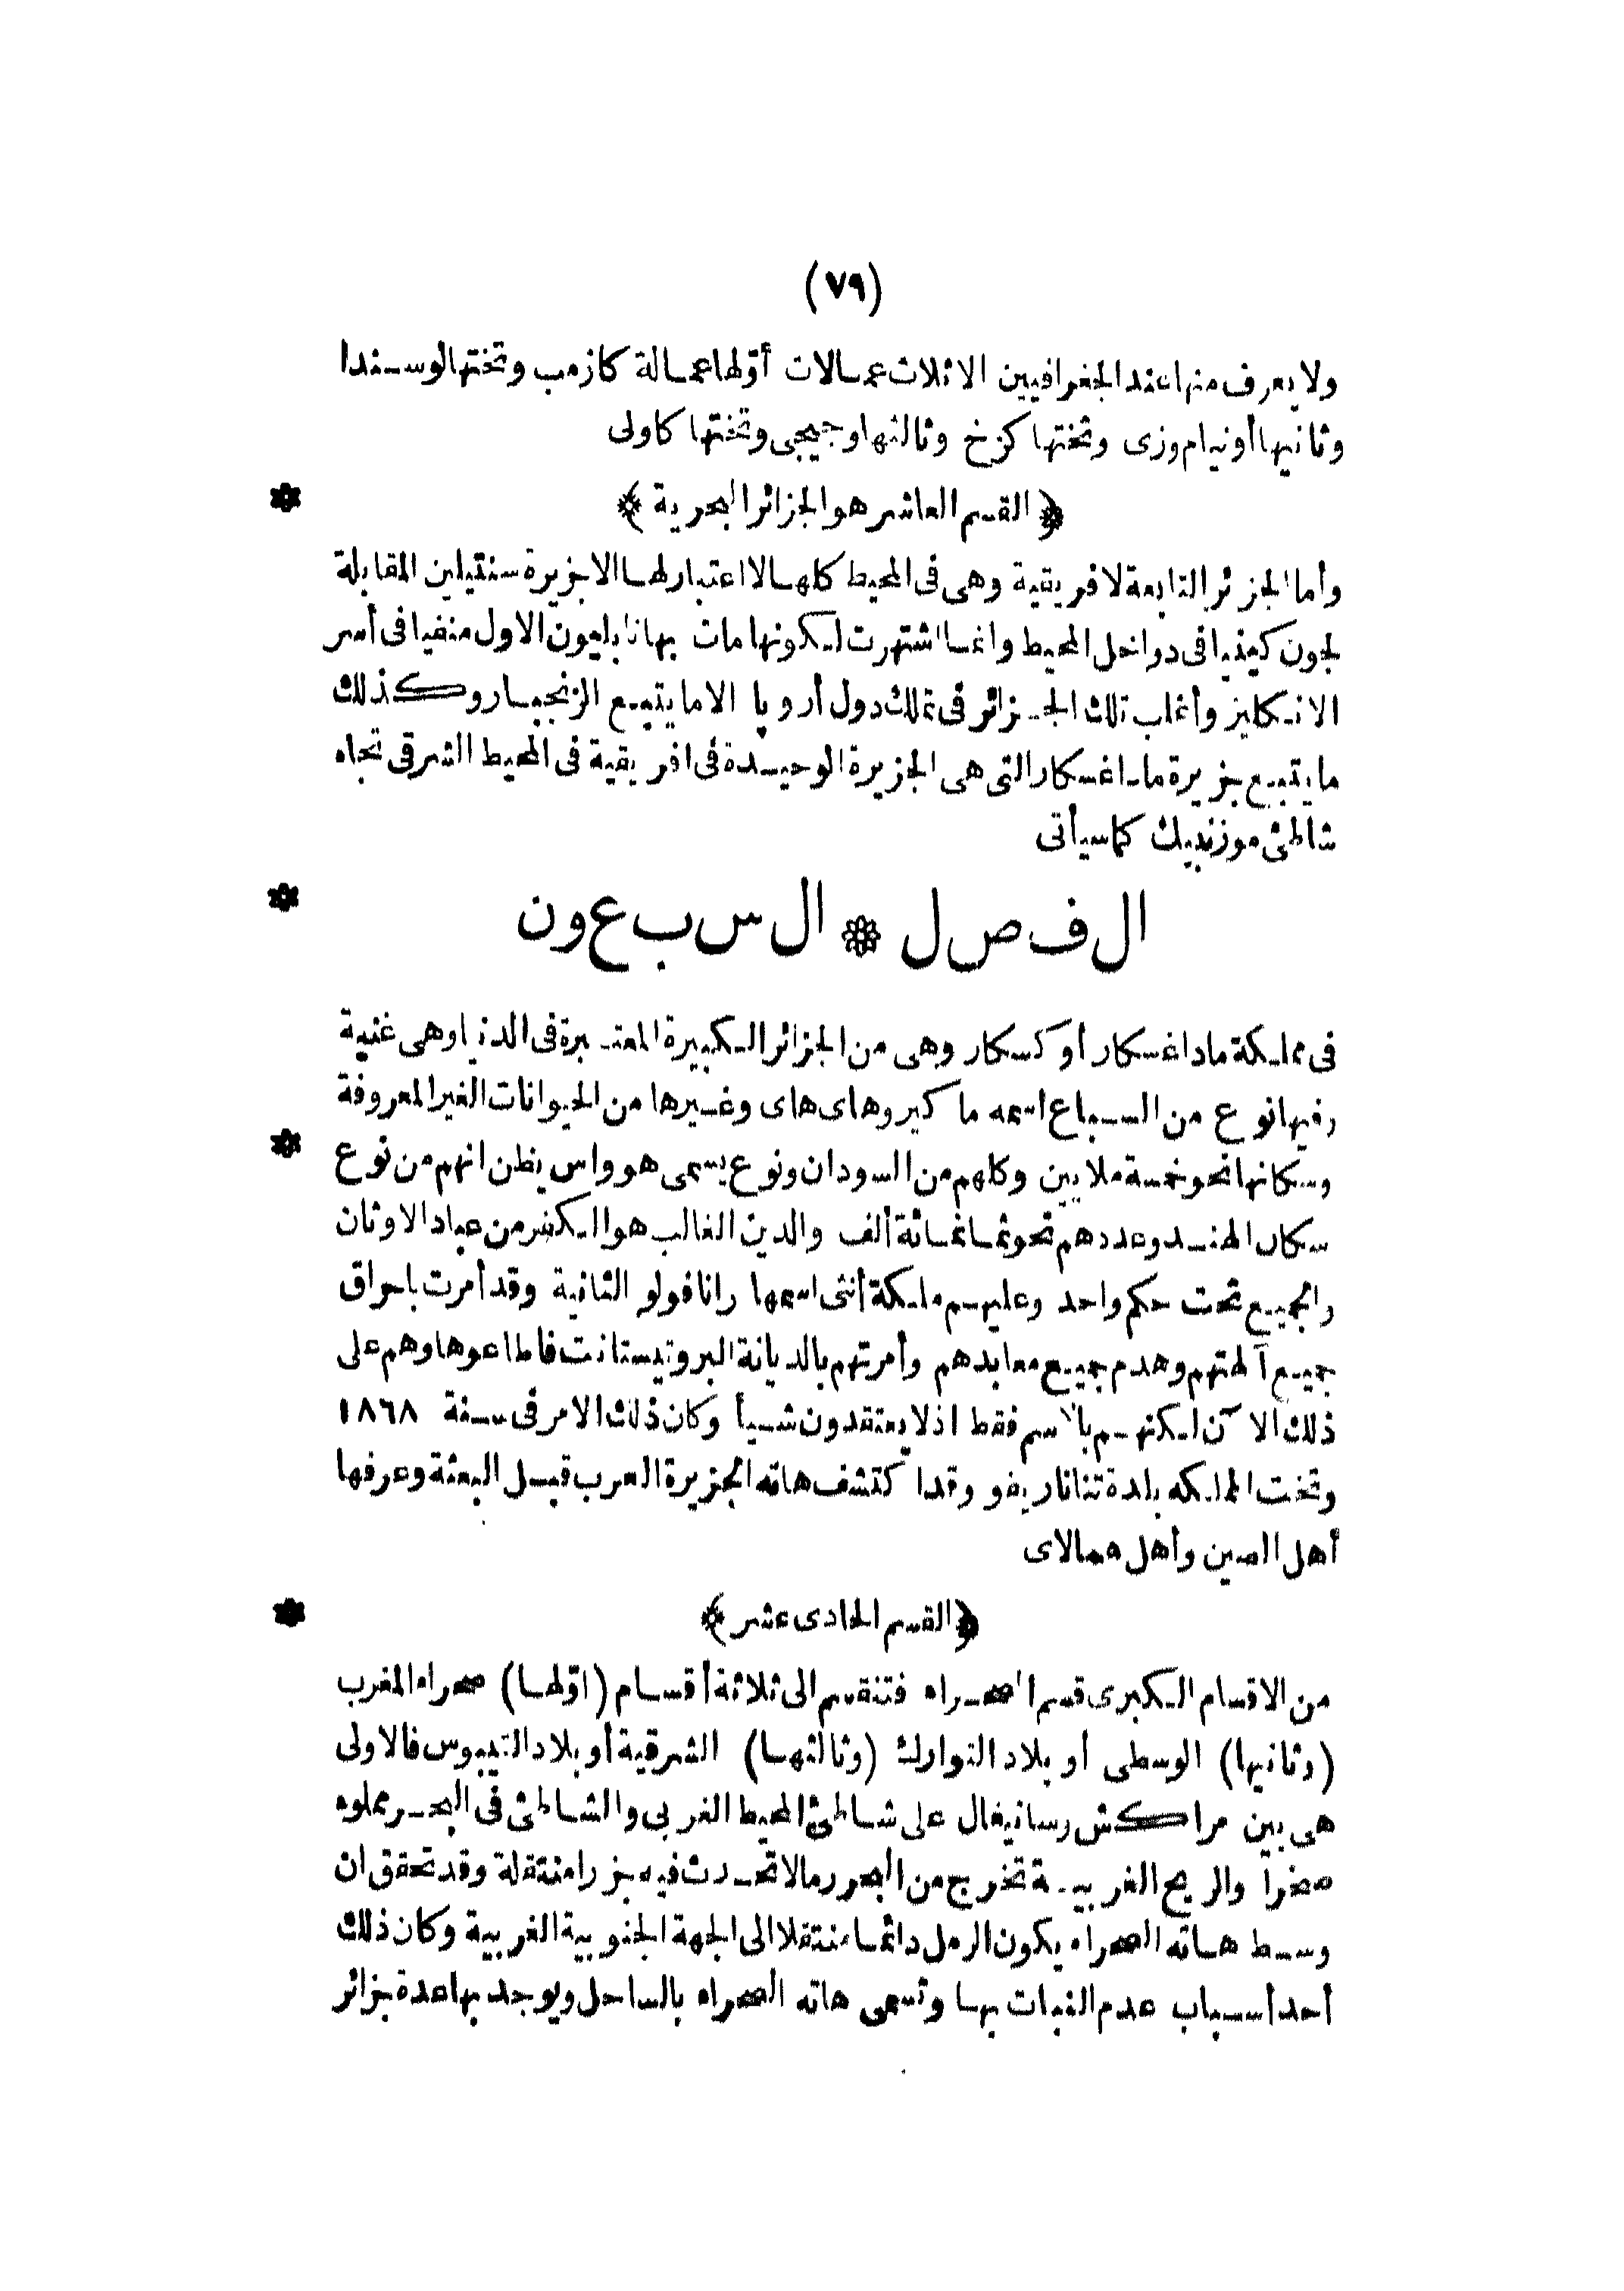 (٧٩)
ولا يعرف منها عند الجغرافيين الا ثلاث عمالات أوّلها عمالة كازمب وتختها لوسندا
وثانيها أونيام وزى وتختها كزخ وثالثها وجيجى وتختها كاولى
﴿ القسم العاشر هو الجزائر البحرية ﴾ *
وأما الجزائر التابعة لافريقية وهى فى المحيط كلها لا اعتبار لها الا جزيرة سنتيلين المقابلة
لجون كينيا فى دواخل المحيط وانما اشتهرت لكونها مات بها نابليون الاول منفيا فى أسر
الانكليز وأغلب تلك الجزائر فى تملك دول أروپا الا ما يتبع الزنجبار وكذلك
ما يتبع جزيرة ماداغسكار التى هى الجزيرة الوحيدة فى افريقية فى المحيط الشرقى تجاه
شاطئ موزنبيك كما سيأتى
الفصل * السبعون *
فى مملكة ماداغسكار أو كسكار وهى من الجزائر الكبيرة المعتبرة فى الدنيا وهى غنية
وفيها نوع من السباع اسمه ماكيروهاى هاى وغيرها من الحيوانات الغير المعروفة
وسكانها نحو خمسة ملايين وكلهم من السودان ونوع يسمى هو واس يظن انهم من نوع *
سكان الهند وعددهم نحو ثمانمائة ألف والدين الغالب هو الكفر من عباد الاوثان
والجميع تحت حكم واحد وعليهم ملكة أنثى اسمها رانافولو الثانية وقد أمرت باحراق
جميع آلهتهم وهدم جميع معابدهم وأمرتهم بالديانة البروتيستانت فاطاعوها وهم على
ذلك الا آن لكنهم بالاسم فقط اذ لا يعتقدون شيأ وكان ذلك الامر فى سنة ١٨٦٨
وتخت المملكه بلدة تنانا ريفو وقد اكتشف هاته الجزيرة العرب قبل البعثة وعرفها
أهل الصين وأهل همالاى
﴿ القسم الحادى عشر ﴾ *
من الاقسام الكبرى قسم الصحراء فتنقسم الى ثلاثة أقسام (اوّلها) صحراء المغرب
(وثانيها) الوسطى أو بلاد التوارك (وثالثها) الشرقية أو بلاد التيبوس فالاولى
هى بين مراكش وسانيغال على شاطئ المحيط الغربى والشاطئ فى البحر مملوء
صخرا والريح الغربية تخرج من البحر رمالا تحدث فيه جزرا منتقلة وقد تحقق ان
وسط هاته الصحراء يكون الرمل دائما منتقلا الى الجهة الجنوبية الغربية وكان ذلك
أحد أسباب عدم النبات بها وتسمى هاته الصحراء بالساحل ويوجد بها عدة جزائر